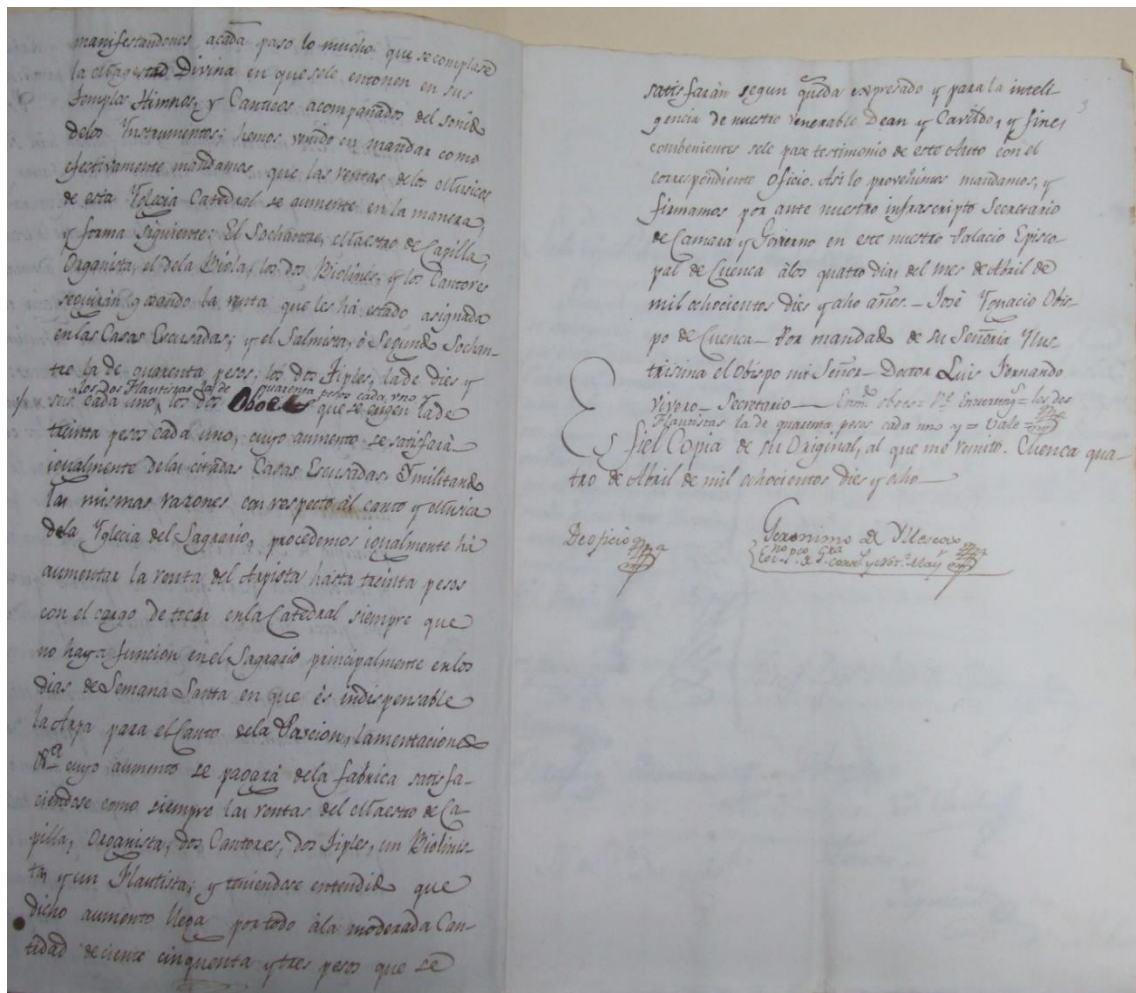 manifestandonos acada paso lo mucho que se complase
la Magestad Divina en que sele entonen en sus
templos Himnos, y Canticos acompañados del sonido
delos Ynstrumentos; hemos venido en mandar como
efectivamente mandamos, que las rentas delos Musicos
de esta Yglecia Catedral se aumente en la manera,
y forma siguiente: El Sochantre, el Maestro de Capilla,
Organista, el dela Biola, los dos Biolines, y los Cantores
seguirán gozando la renta que les há estado asignada
en las Casas Escusadas; y el Salmista, ó Segundo Sochan-
tre la de quarenta pesos; los dos Tiples, lade dies y
los dos Flautistas la de quarenta pesos cada uno y
seis cada uno, los dos Oboes que se erigen lade
treinta pesos cada uno, cuyo aumento se satisfará
igualmente delas citadas Casas Escusadas. Y militando
las mismas razones con respecto al canto y Musica
dela Yglecia del Sagrario, procedemos igualmente há
aumentar la renta del Arpista hasta treinta pesos
con el cargo de tocar enla Catedral siempre que
no haya funcion enel Sagrario principalmente enlos
dias de Semana Santa en que és indispensable
la Arpa para el Canto dela Pascion, lamentaciones
&ª cuyo aumento se pagará dela fabrica satisfa-
ciendose como siempre las rentas del Maestro de Ca-
pilla, Organista, dos Cantores, dos Tiples, un Biolinis-
ta, y un Flautista; y teniendose entendido que
dicho aumento llega por todo àla moderada Can-
tidad de ciento cinquenta y tres pesos que se
3
satisfarán segun queda expresado y para la inteli-
gencia de nuestro venerable Dean y Cavildo, y fines
combenientes sele pase testimonio de este Auto con el
correspondiente Oficio. Asi lo provehimos mandamos, y
firmamos por ante nuestro infrascripto Secretario
de Camara y Govierno en este nuestro Palacio Episco-
pal de Cuenca álos quatro dias del mes de Abril de
mil ochocientos dies y ocho años. – José Ygnacio Obis-
po de Cuenca – Por mandado de su Señoria Ylus-
trisima el Obispo mi Señor – Doctor Luis Fernando
Vivero – Secretario – oboes = los dos
Flautistas la de quarenta pesos cada uno y = Vale =
Es fiel Copia de su Original, al que me remito. Cuenca qua-
tro de Abril de mil ochocientos dies y ocho –
De oficio
Geronimo de Yllescas